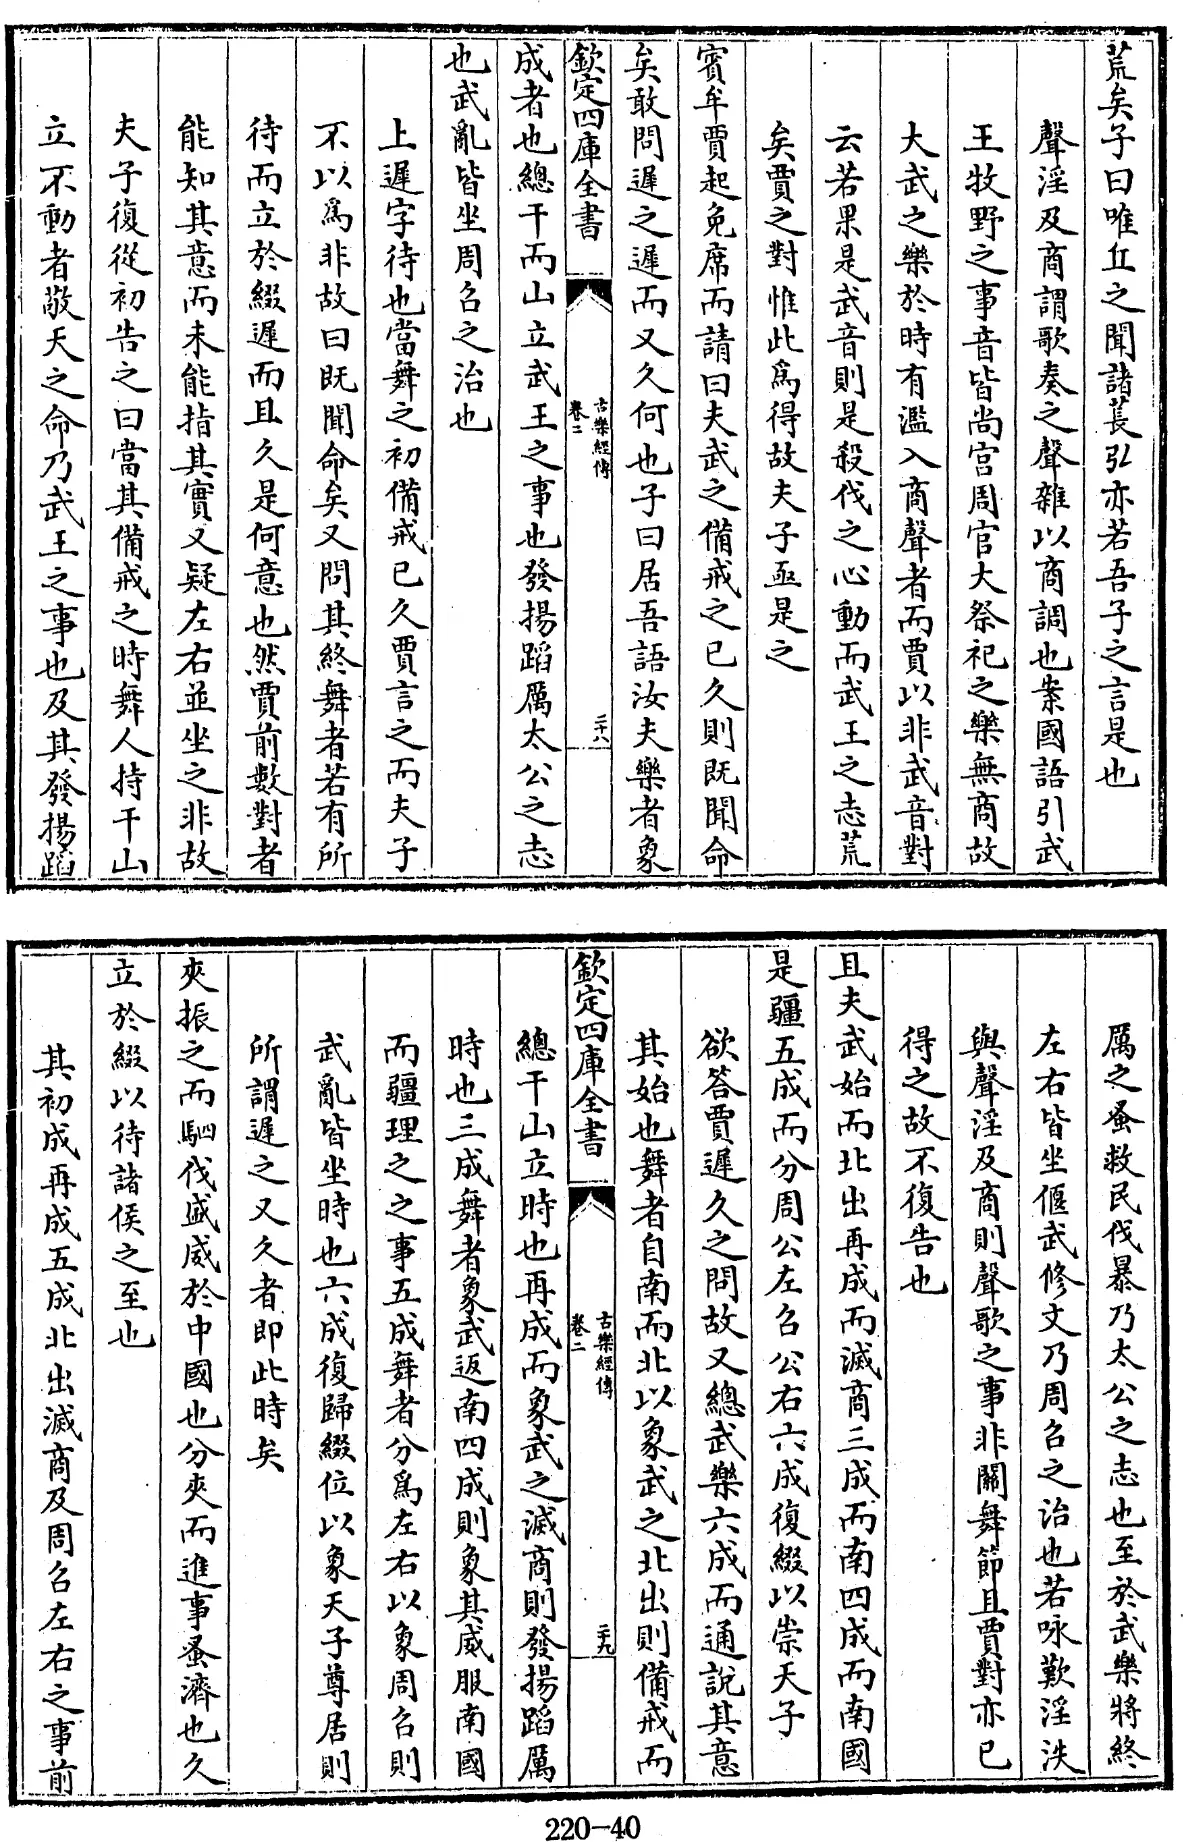 荒矣子曰唯丘之聞諸萇弘亦若吾子之言是也
聲淫及商謂歌奏之聲雜以商調也案國語引武
王牧野之事音皆尚宮周官大祭祀之樂無商故
大武之樂於時有濫入商聲者而賈以非武音對
云若果是武音則是殺伐之心動而武王之志荒
矣賈之對惟此爲得故夫子亟是之
賓牟賈起免席而請曰夫武之備戒之已久則既聞命
矣敢問遲之遲而又久何也子曰居吾語汝夫樂者象
欽定四庫全書
古樂經傳
卷二
二十八
成者也總干而山立武王之事也發揚蹈厲太公之志
也武亂皆坐周召之治也
上遲字待也當舞之初備戒已久賈言之而夫子
不以爲非故曰既聞命矣又問其終舞者若有所
待而立於綴遲而且久是何意也然賈前數對者
能知其意而未能指其實又疑左右並坐之非故
夫子復從初告之曰當其備戒之時舞人持干山
立不動者敬天之命乃武王之事也及其發揚蹈
厲之蚤救民伐暴乃太公之志也至於武樂將終
左右皆坐偃武修文乃周召之治也若咏歎淫泆
與聲淫及商則聲歌之事非關舞節且賈對亦已
得之故不復告也
且夫武始而北出再成而滅商三成而南四成而南國
是疆五成而分周公左召公右六成復綴以崇天子
欲答賈遲久之問故又總武樂六成而通說其意
其始也舞者自南而北以象武之北出則備戒而
欽定四庫全書
古樂經傳
卷二
二十九
總干山立時也再成而象武之滅商則發揚蹈厲
時也三成舞者象武返南四成則象其威服南國
而疆理之之事五成舞者分爲左右以象周召則
武亂皆坐時也六成復歸綴位以象天子尊居則
所謂遲之又久者即此時矣
夾振之而駟伐盛威於中國也分夾而進事蚤濟也久
立於綴以待諸侯之至也
其初成再成五成北出滅商及周召左右之事前
220-40